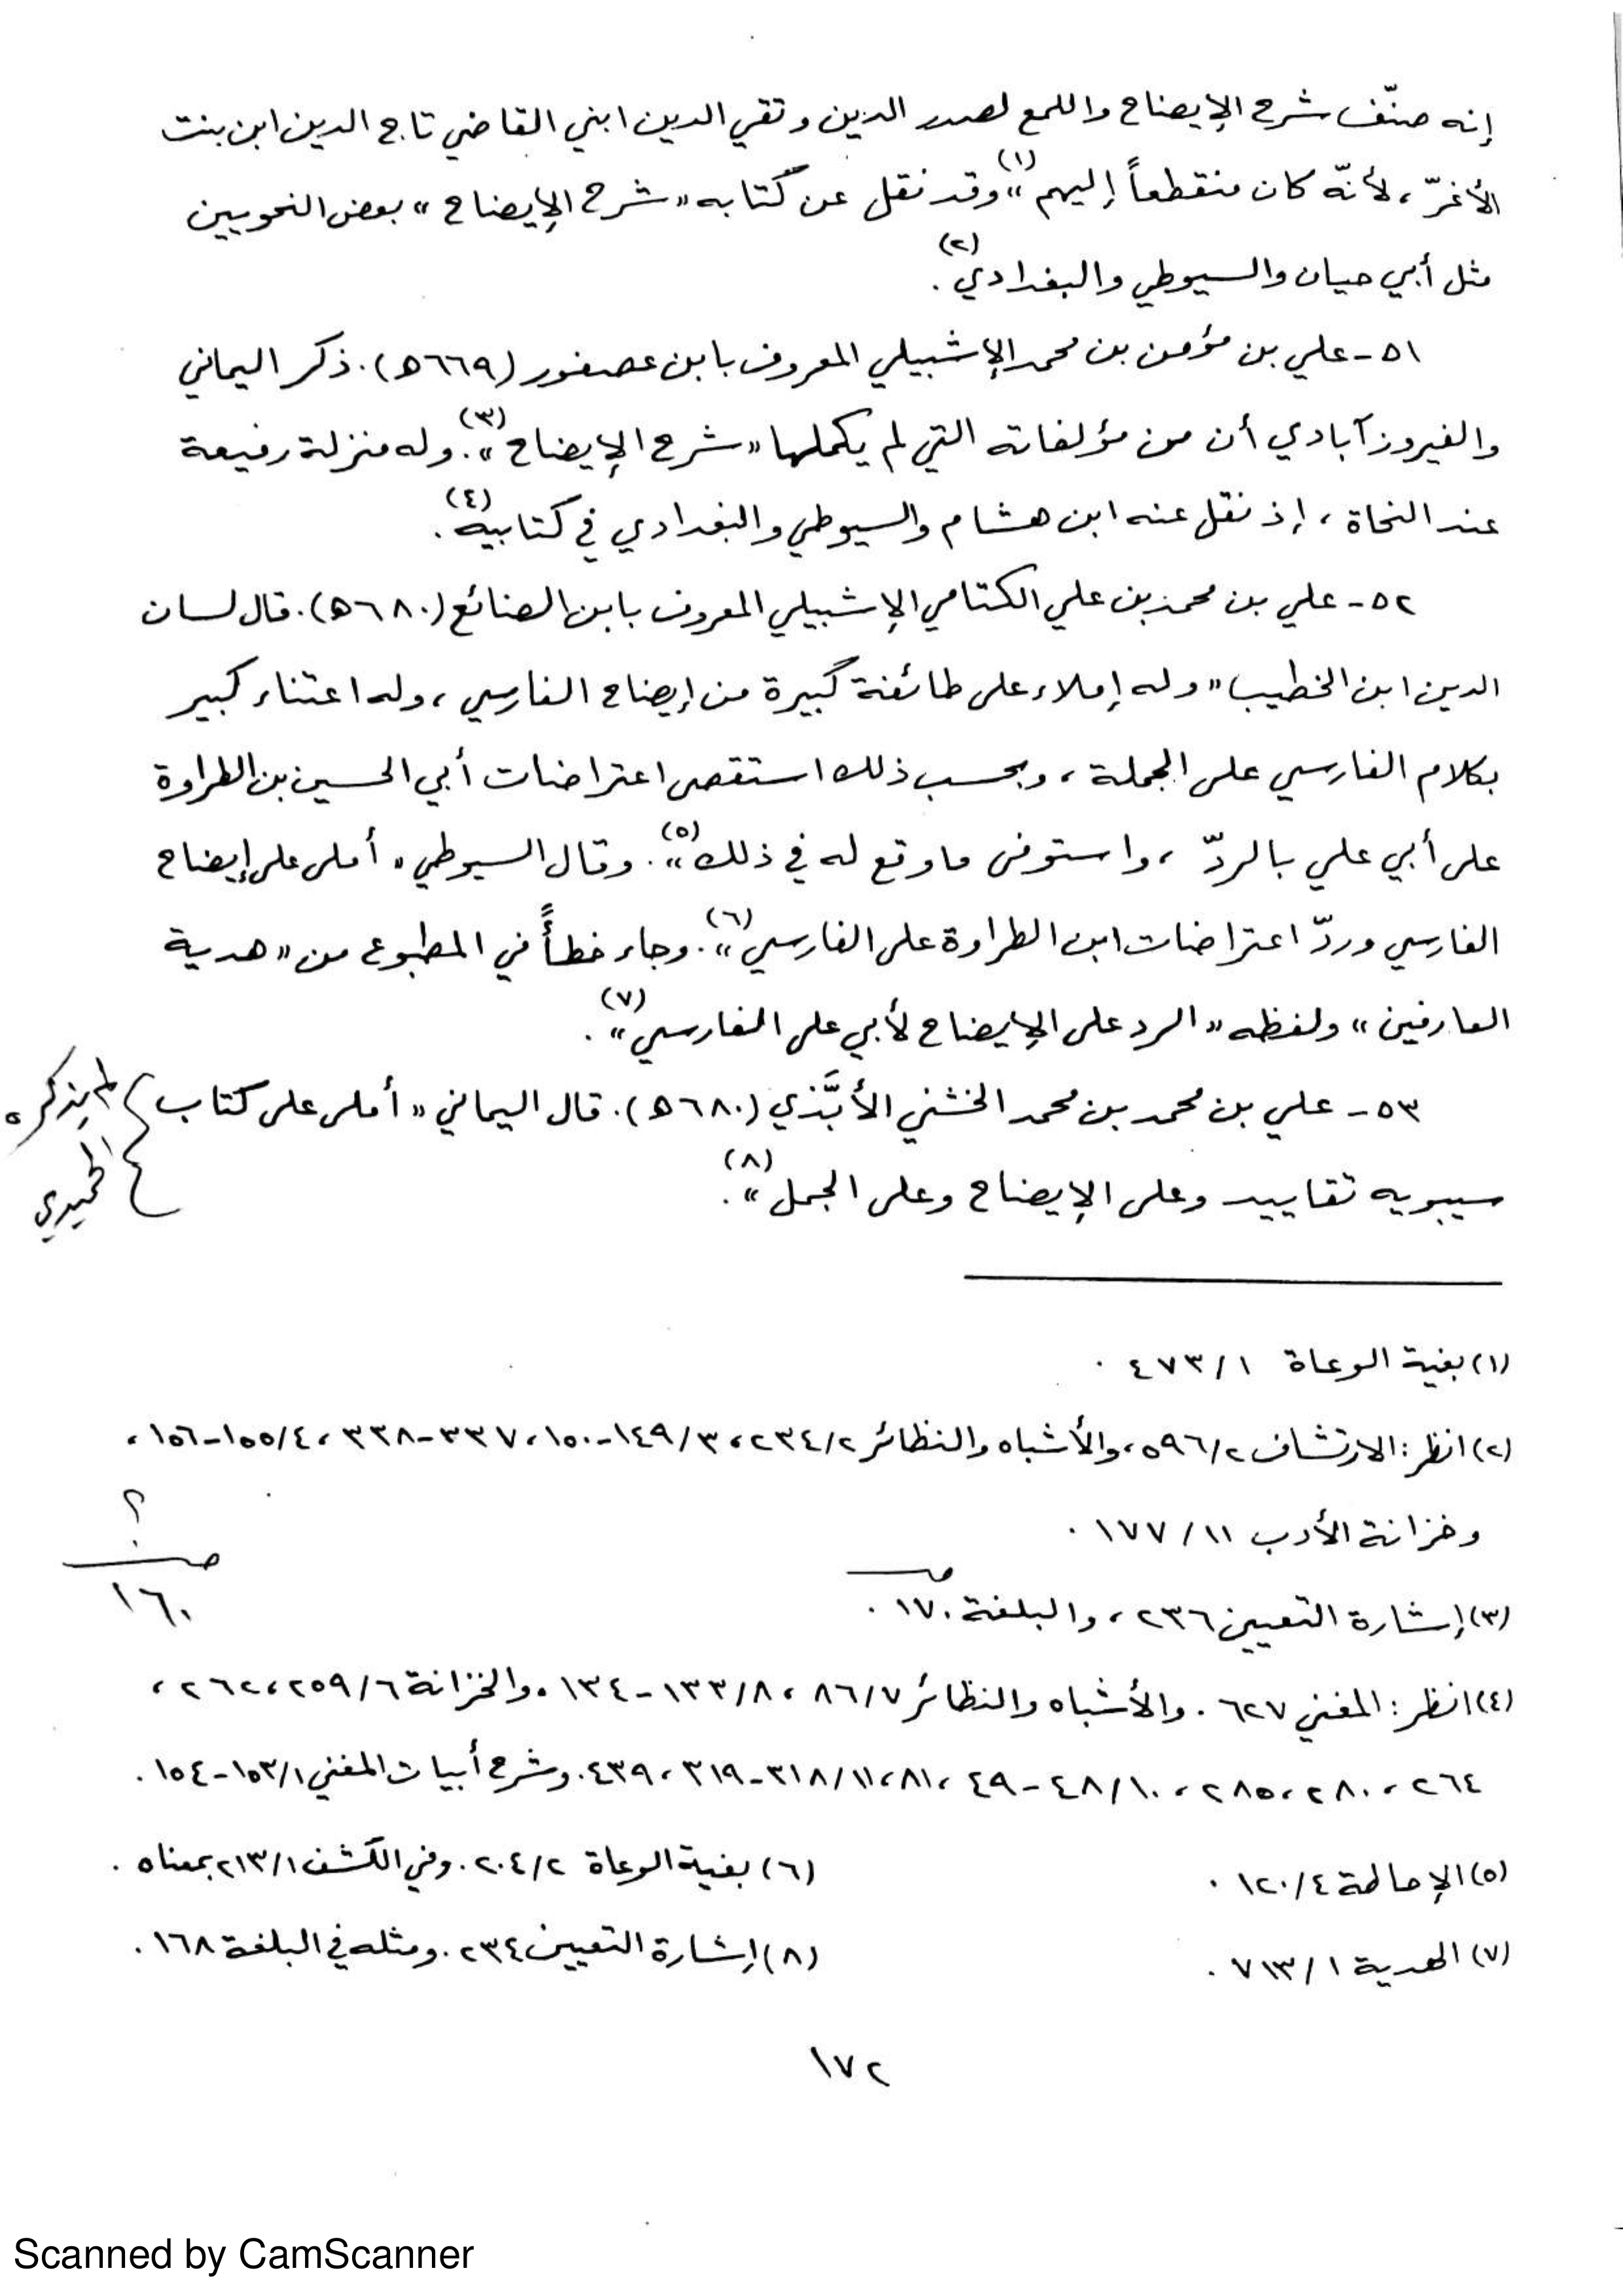 إنه صنّف شرح الإيضاح واللمع لصدر الدين وتقي الدين ابني القاضي تاج الدين ابن بنت
الأغرّ، لأنّه كان منقطعاً إليهم»(١) وقد نقل عن كتابه «شرح الإيضاح» بعض النحويين
مثل أبي حيان والسيوطي والبغدادي(٢).
٥١- علي بن مؤمن بن محمد الإشبيلي المعروف بابن عصفور (٦٦٩ه). ذكر اليماني
والفيروزآبادي أن من مؤلفاته التي لم يكملها «شرح الإيضاح»(٣). وله منزلة رفيعة
عند النحاة، إذ نقل عنه ابن هشام والسيوطي والبغدادي في كتابيه(٤).
٥٢- علي بن محمد بن علي الكتامي الإشبيلي المعروف بابن الضائع (٦٨٠ه). قال لسان
الدين ابن الخطيب «وله إملاء على طائفة كبيرة من إيضاح الفارسي، وله اعتناء كبير
بكلام الفارسي على الجملة، وبحسب ذلك استقصى اعتراضات أبي الحسين بن الطراوة
على أبي علي بالردّ، واستوفى ما وقع له في ذلك»(٥). وقال السيوطي «أملى على إيضاح
الفارسي وردّ اعتراضات ابن الطراوة على الفارسي»(٦). وجاء خطأً في المطبوع من «هدية
العارفين» ولفظه «الرد على الإيضاح لأبي على الفارسي»(٧).
٥٣- علي بن محمد بن محمد الخشني الأبَّذي (٦٨٠ه). قال اليماني «أملى على كتاب
سيبويه تقاييد وعلى الإيضاح وعلى الجمل»(٨).
لم يذكره
الحميدي
(١) بغية الوعاة ١/ ٤٧٣.
(٢) انظر: الارتشاف ٢/ ٥٩٦، والأشباه والنظائر ٢/ ٢٣٤، ٣/ ١٤٩-١٥٠، ٣٣٧-٣٣٨، ٤/ ١٥٥-١٥٦،
وخزانة الأدب ١١/ ١٧٧.
(٣) إشارة التعيين ٢٣٦، والبلغة ١٧٠.
؟
ص
١٦٠
(٤) انظر: المغني ٦٢٧. والأشباه والنظائر ٧/ ٨٦، ٨/ ١٣٣-١٣٤. والخزانة ٦/ ٢٥٩، ٢٦٢،
٢٦٤، ٢٨٠، ٢٨٥، ١٠/ ٤٨-٤٩، ٨١، ١١/ ٣١٨-٣١٩، ٤٣٩. وشرح أبيات المغني ١/ ١٥٣-١٥٤.
(٥) الإحاطة ٤/ ١٢٠. (٦) بغية الوعاة ٢/ ٢٠٤. وفي الكشف ١/ ٢١٣ بمعناه.
(٧) الهدية ١/ ٧١٣. (٨) إشارة التعيين ٢٣٤. ومثله في البلغة ١٦٨.
١٧٢
Scanned by CamScanner